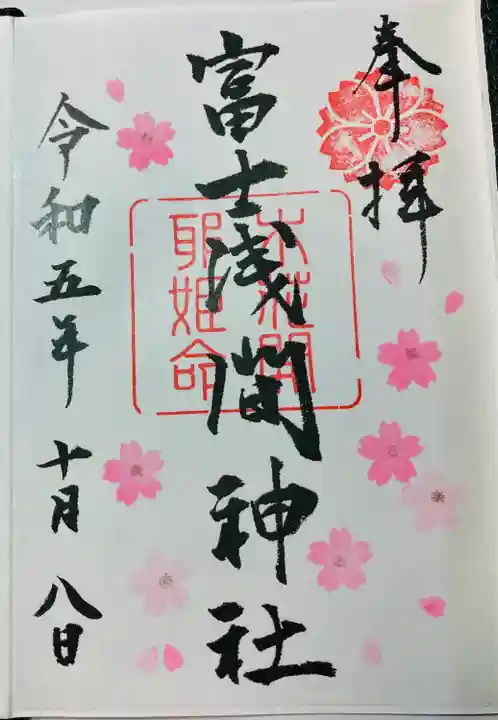 奉拝
富士浅間神社
木花開
耶姫命
令和五年十月八日